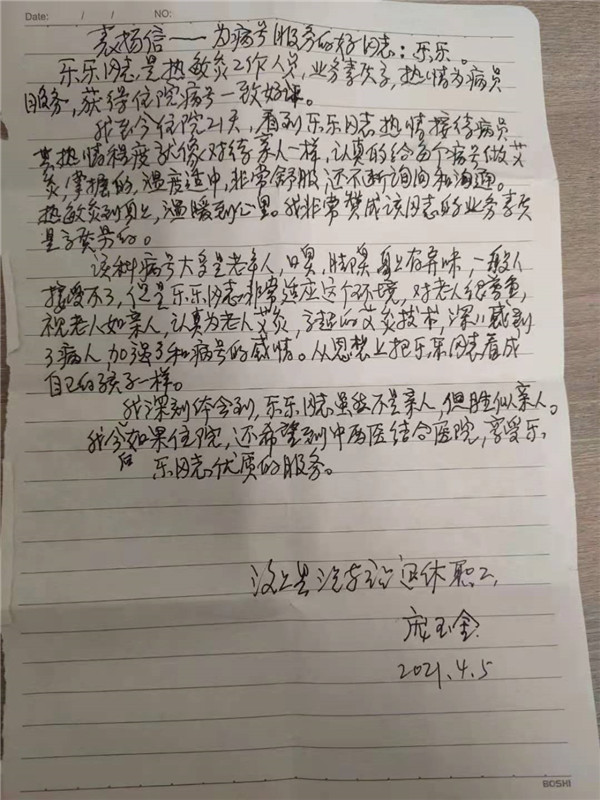 Date: / / NO:
表扬信——为病号服务的好同志：乐乐。
乐乐同志是热敏灸工作人员，业务素质高，热情为病员
服务，获得住院病号一致好评。
我至今住院21天，看到乐乐同志热情接待病员
其热情程度就像对待亲人一样，认真的给每个病号做艾
灸，掌握的温度适中，非常舒服还不断询问和沟通。
热敏灸到身上，温暖到心里。我非常赞成该同志的业务素质
是高质量的。
该科病号大多是老年人，口臭，脚臭身上有异味，一般人
接受不了，但是乐乐同志非常适应这个环境，对老人很尊重，
视老人如亲人，认真为老人艾灸，高超的艾灸技术，深深感到
了病人，加强了和病号的感情。从思想上把乐乐同志看成
自己的孩子一样。
我深刻体会到，乐乐同志虽然不是亲人，但胜似亲人。
我今后如果住院，还希望到中西医结合医院，享受乐
乐同志优质的服务。
汶上县 退休职工
玉金
2021.4.5
BOSHI